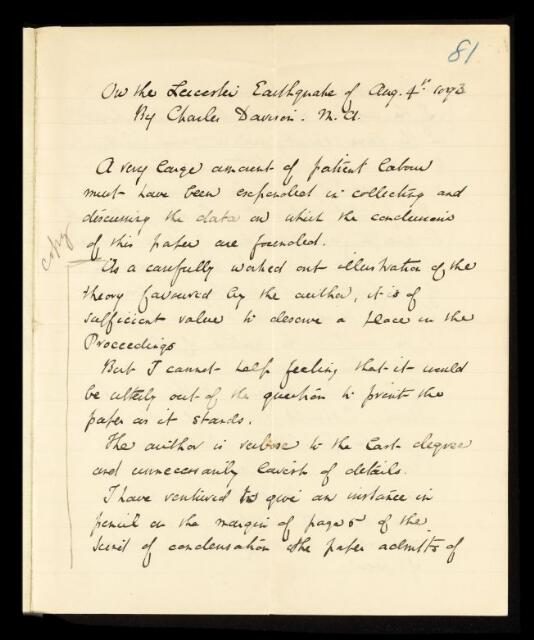 81
On the Leicester Earthquake of Aug. 4th 1893
By Charles Davison. M.A.
A very large amount of patient labour
must have been expended in collecting and
discussing the data on which the conclusions
of this paper are founded.
copy
As a carefully worked out illustration of the
theory favoured by the author, it is of
sufficient value to deserve a place in the
Proceedings
But I cannot help feeling that it would
be utterly out of the question to print the
paper as it stands.
The author is verbose to the last degree
and unnecessarily lavish of details.
I have ventured to give an instance in
pencil on the margin of page 5 of the
sort of condensation the paper admits of